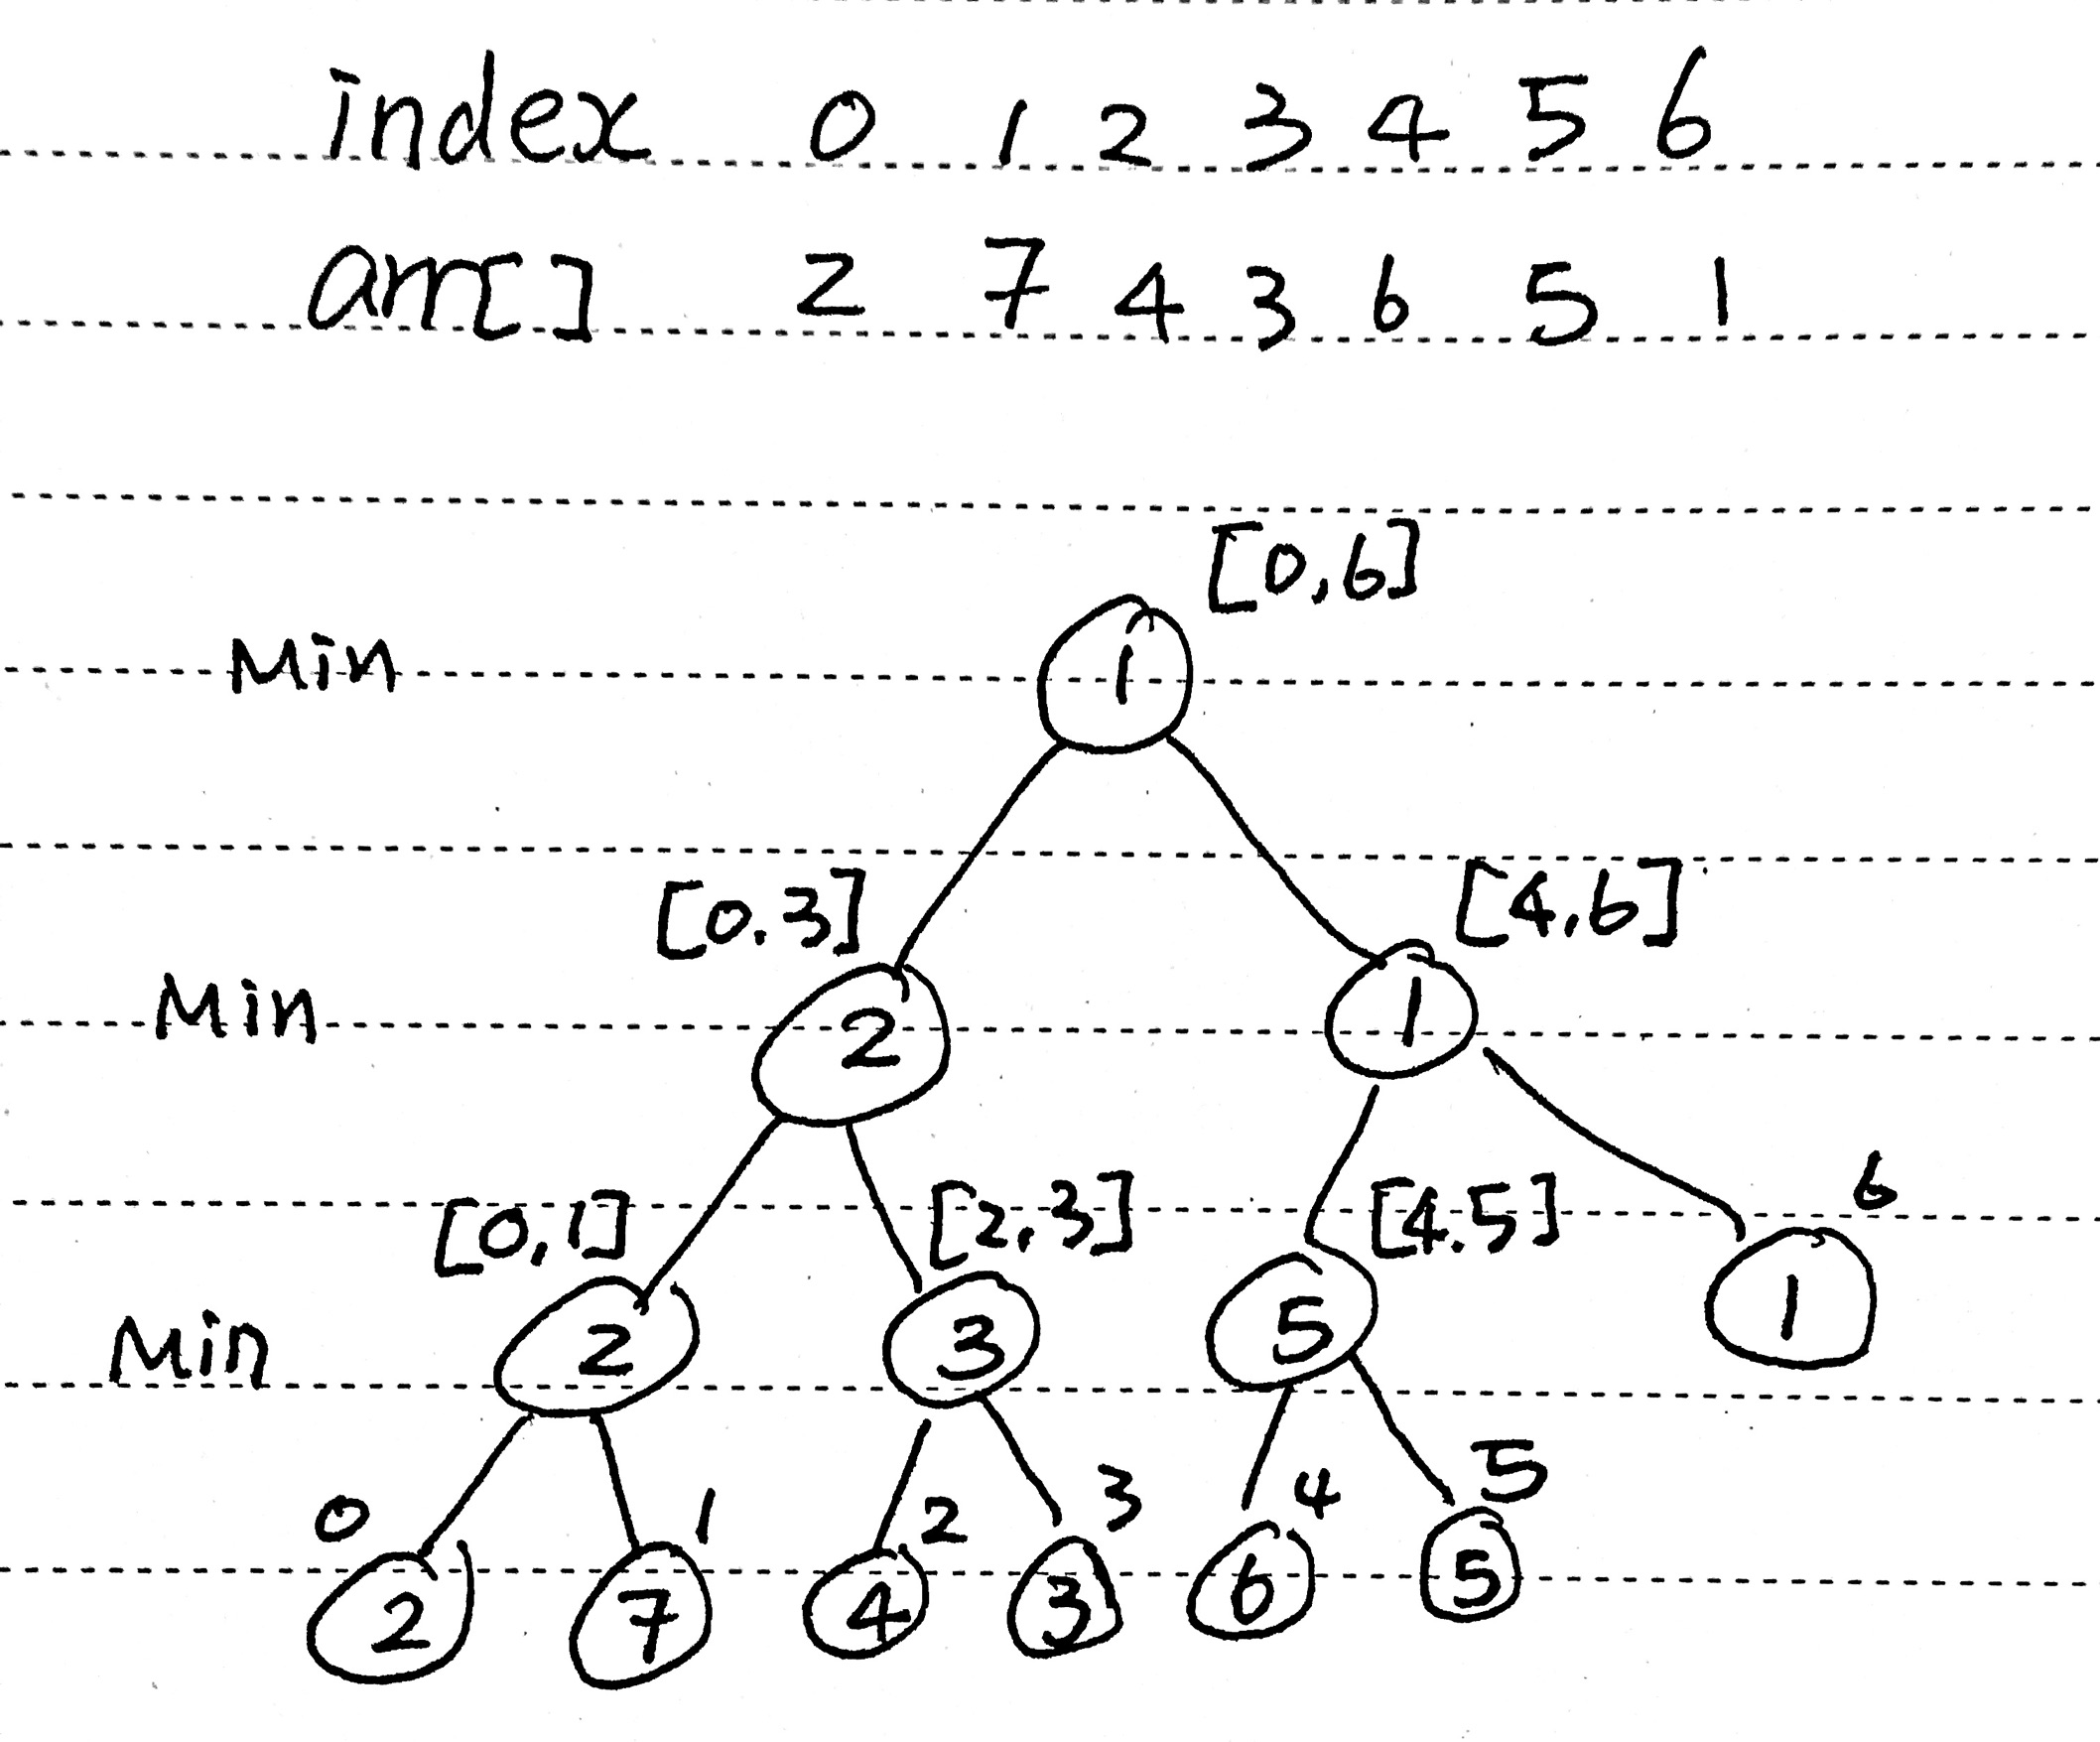 index 0 1 2 3 4 5 6
arr[] 2 7 4 3 6 5 1
[0,6]
Min 1
[0,3] [4,6]
Min 2 1
[0,1] [2,3] [4,5] 6
Min 2 3 5 1
0 1 2 3 4 5
2 7 4 3 6 5